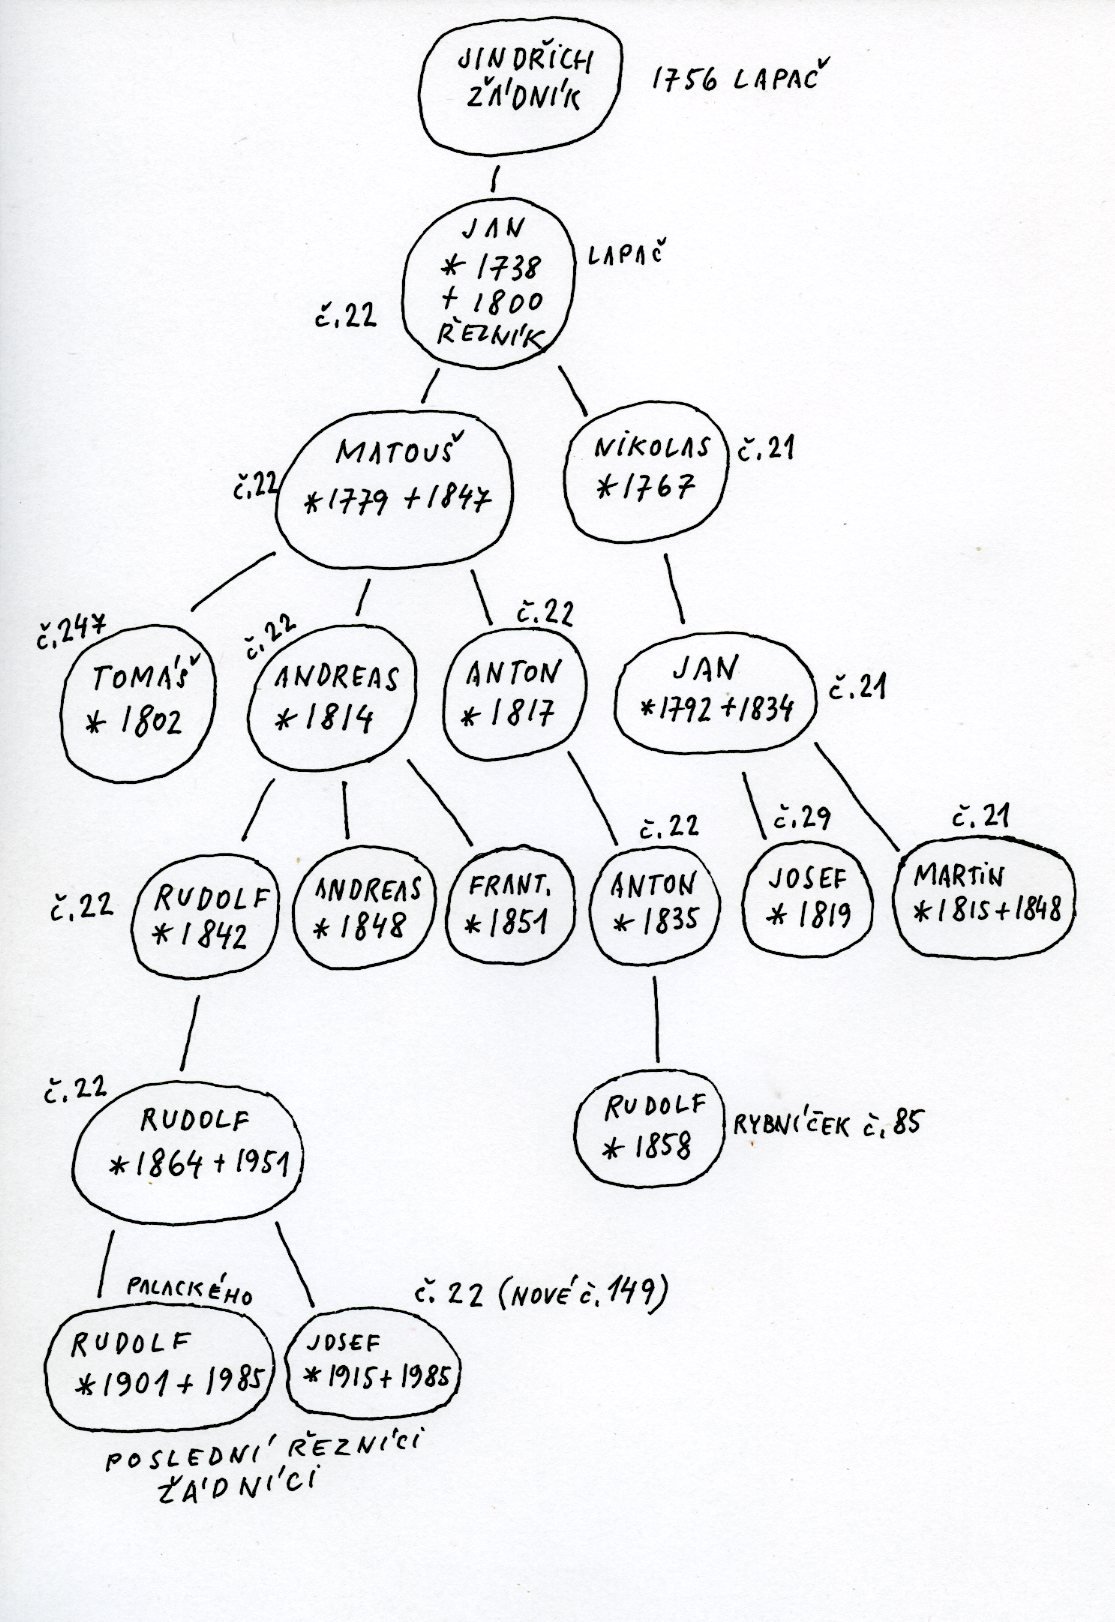 JINDŘICH
ŽÁDNÍK
1756 LAPAČ
JAN
* 1738
+ 1800
ŘEZNÍK
LAPAČ
č.22
MATOUŠ
*1779 +1847
č.22
NIKOLAS
*1767
č.21
č.247
TOMÁŠ
* 1802
č.22
ANDREAS
*1814
č.22
ANTON
* 1817
JAN
*1792 +1834
č.21
č.22
RUDOLF
*1842
ANDREAS
*1848
FRANT.
*1851
č.22
ANTON
* 1835
č.29
JOSEF
* 1819
č.21
MARTIN
*1815+1848
č.22
RUDOLF
*1864 + 1951
RUDOLF
* 1858
RYBNÍČEK č.85
PALACKÉHO
RUDOLF
*1901 + 1985
č. 22 (NOVÉ č.149)
JOSEF
*1915+1985
POSLEDNÍ ŘEZNÍCI
ŽÁDNÍCI